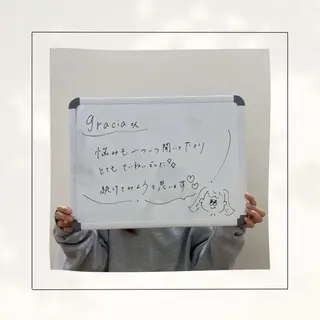 graciaさん
悩みも一つ一つ聞いてたり
とてもていねいでした
続けてみようと思います♡♡